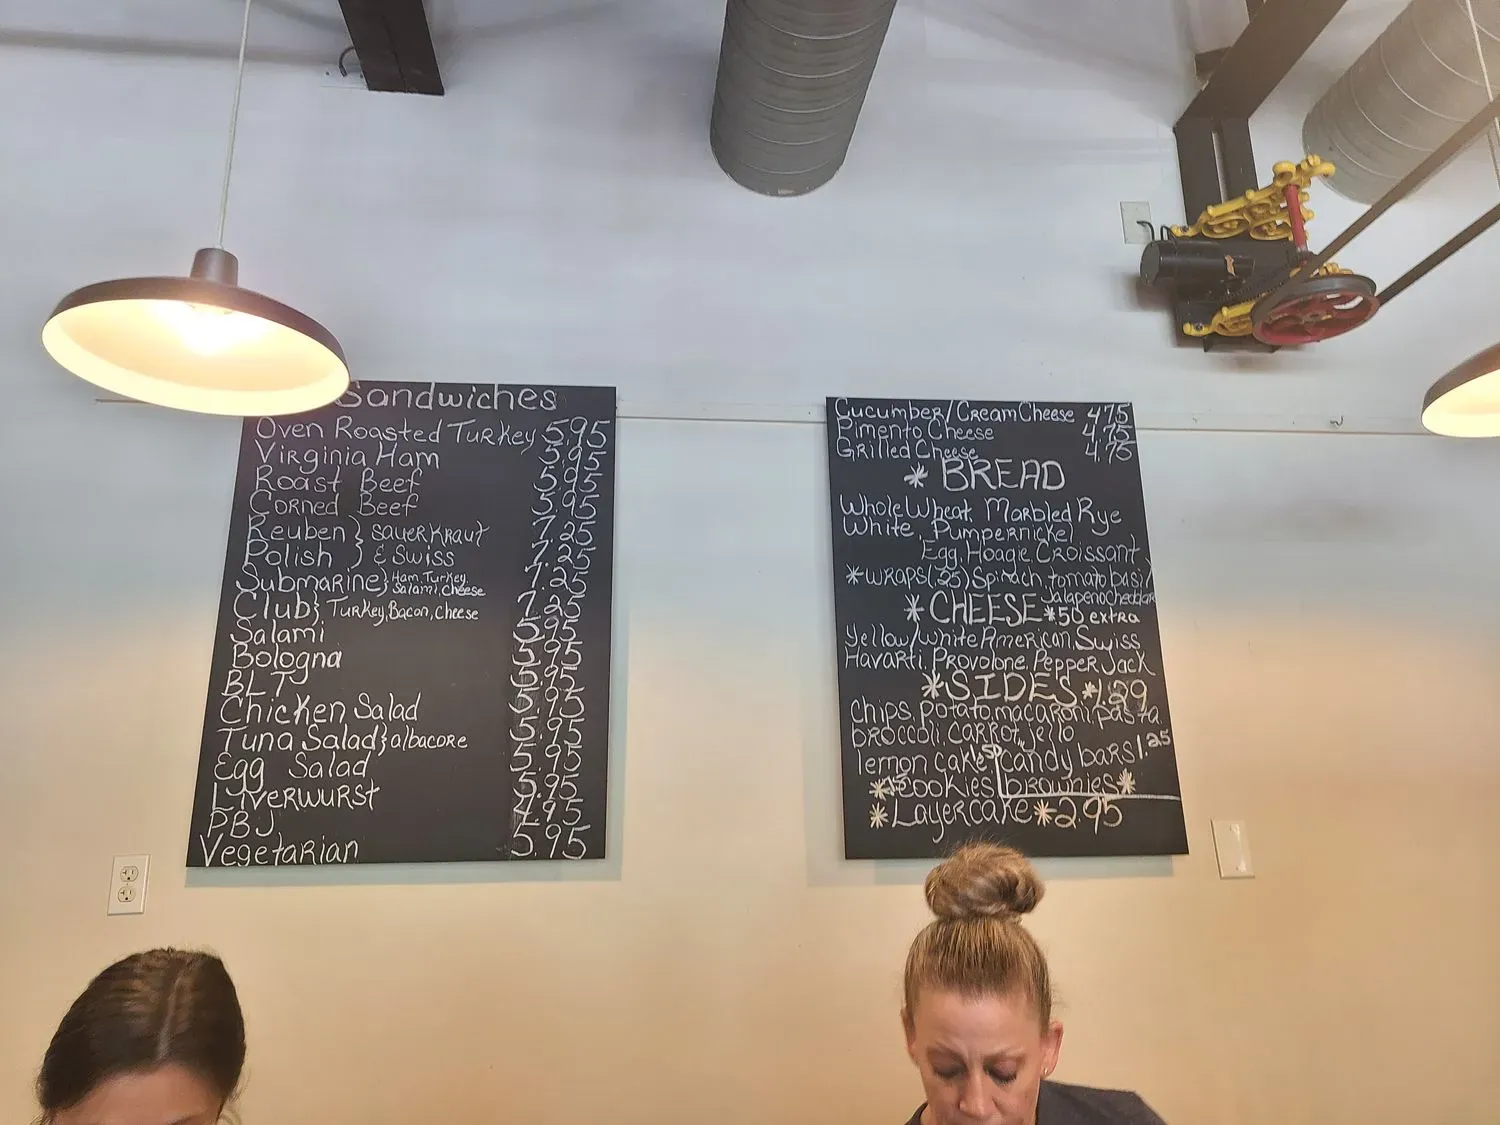 Sandwiches
Oven Roasted Turkey 5.95
Virginia Ham 5.95
Roast Beef 5.95
Corned Beef 5.95
Reuben } sauerkraut 7.25
Polish } & Swiss 7.25
Submarine } Ham, Turkey, Salami, Cheese 7.25
Club } Turkey, Bacon, Cheese 7.25
Salami 5.95
Bologna 5.95
BLT 5.95
Chicken Salad 5.95
Tuna Salad } albacore 5.95
Egg Salad 5.95
Liverwurst 5.95
PBJ 4.95
Vegetarian 5.95
Cucumber/Cream Cheese 4.75
Pimento Cheese 4.75
Grilled Cheese 4.75
* BREAD
Whole Wheat, Marbled Rye
White, Pumpernickel
Egg, Hoagie, Croissant
*wraps(.25) Spinach, tomato basil
Jalapeno cheddar
* CHEESE *50 extra
Yellow/White American, Swiss
Havarti, Provolone, Pepper Jack
*SIDES *1.29
chips, potato, macaroni, pasta
broccoli, carrot, jello
lemon cake candy bars 1.25
*cookies brownies*
*Layercake *2.95